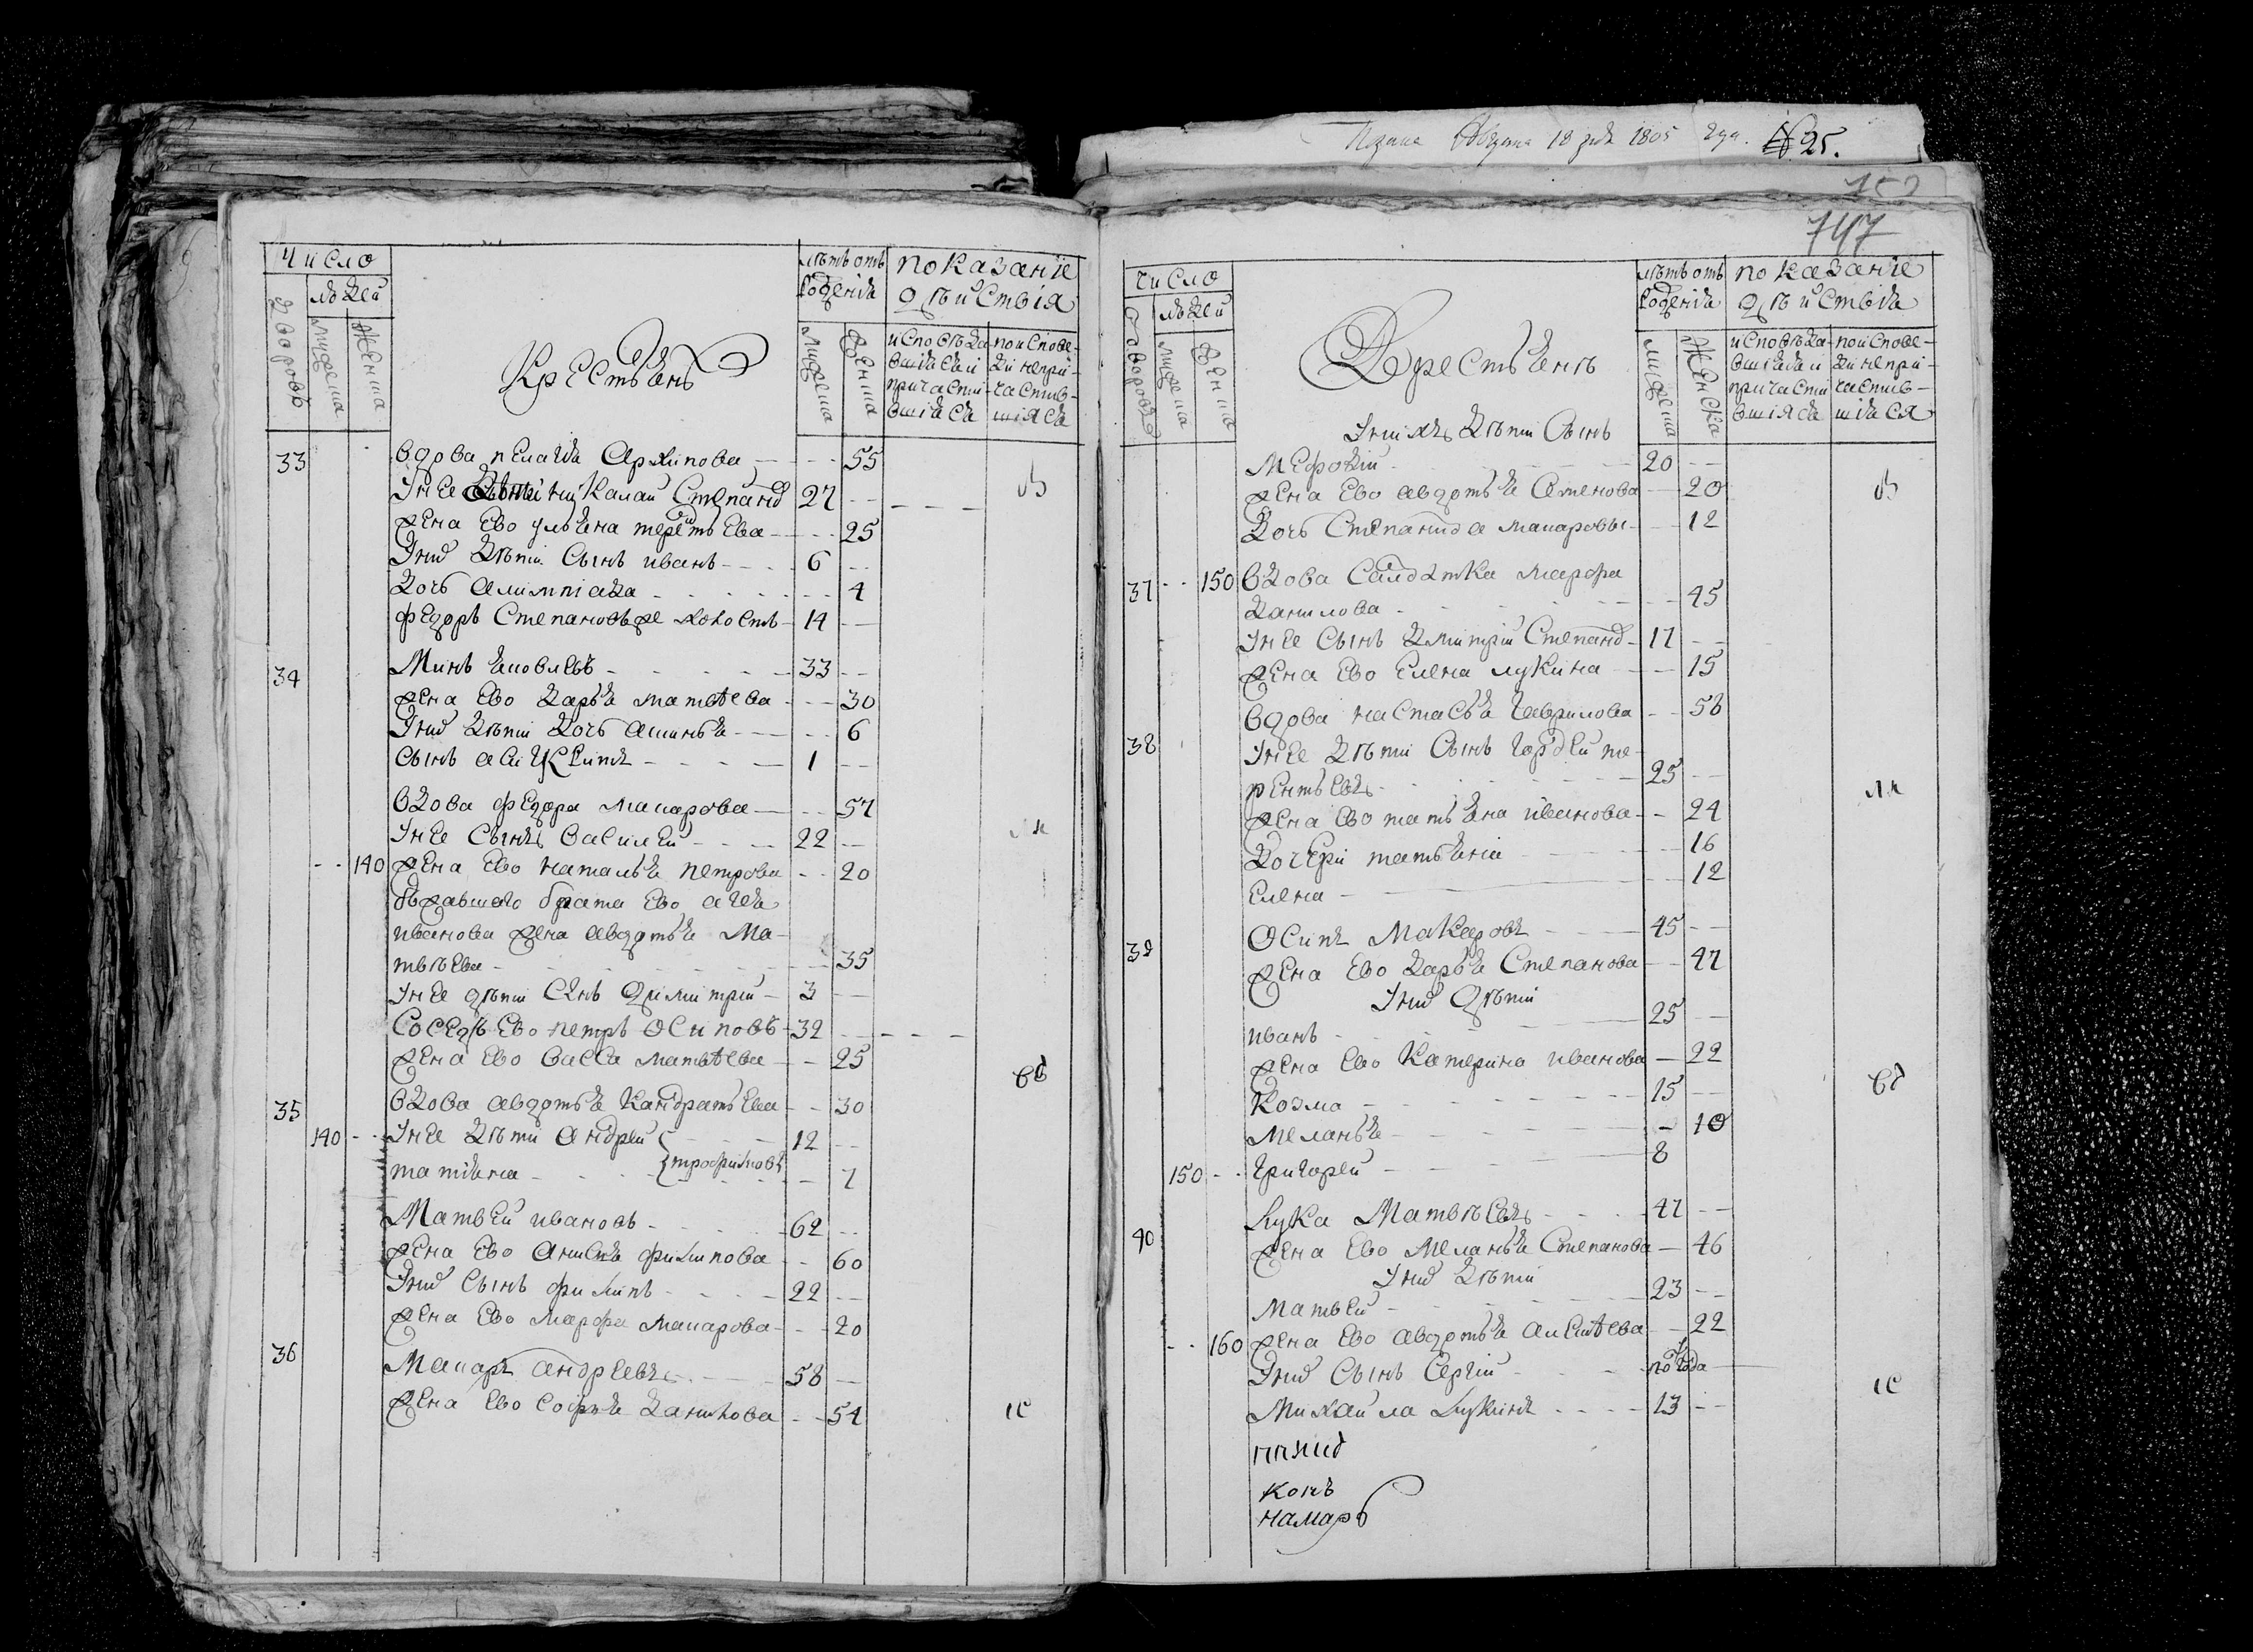 № 25.
747
Число
людей
дворовъ
мужеска
женска
Крестьянъ
лѣтъ отъ
рожденїя
мужеска
женска
показанїе
дѣйствїя
исповѣда-
вшїяся и
причасти-
вшїяся
по испове-
ди непри-
частив-
шїяся
33 вдова пелагѣя Архипова 55
У нее николаи Степанов 27
жена Ево ульяна терентьева 25
У них дѣти Сынъ иванъ 6
дочь Алимпїада 4
федоръ Степановъ же холостъ 14
34 Минъ яковлевъ 33
жена Ево дарья матвѣева 30
У них дѣти дочь акинья 6
Сынъ 1
вдова федора макарова 57
У нее Сынъ Василеи 22
140 жена Ево наталья петрова 20
бѣжавшаго брата Ево
иванова жена авдотья Ма-
твѣева 35
У нее дѣти Сынъ димитрїи 3
Соседъ Ево петръ Осиповъ 32
жена Ево васса матвѣева 25
35 вдова авдотья Кандратьева 30
140 У нее дѣти Андреи 12
татїяна трофимовы 7
Матвеи ивановъ 62
жена Ево Анисья филипова 60
У них Сынъ филипъ 22
жена Ево марфа макарова 20
36 Макаръ андреевъ 58
жена Ево Софья данилова 54
число
людеи
дворовъ
мужеска
женска
Крестьянъ
лѣтъ отъ
рожденїя
мужеска
женска
показанїе
дѣйствїя
исповѣда-
вшїяся и
причасти
вшїяся
по испове-
ди непри-
частив-
шїяся
У нихъ дѣти Сынъ
Мефодїи 20
жена Ево авдотья Семенова 20
Дочь Степанида макаровы 12
37 150 вдова Салдатка марфа
данилова 45
У нее Сынъ дмитрїи Степанов 17
жена Ево Елена лукина 15
вдова настасья гаврилова 58
38 У нее дѣти Сынъ гордеи те-
рентьевъ 25
жена Ево татьяна иванова 24
дочери татьяна 16
Елена 12
39 Осипъ Макаровъ 45
жена Ево дарья Степанова 47
У них дѣти
иванъ 25
жена Ево Катерина иванова 22
Козма 15
меланья 10
150 григореи 8
40 Лука Матвѣевъ 47
жена Ево меланья Степанова 46
У них дѣти
матвеи 23
160 жена Ево авдотья алексѣева 22
У них Сынъ Сергїи полгода
Михаила Лукинъ 13
конъ
намарь